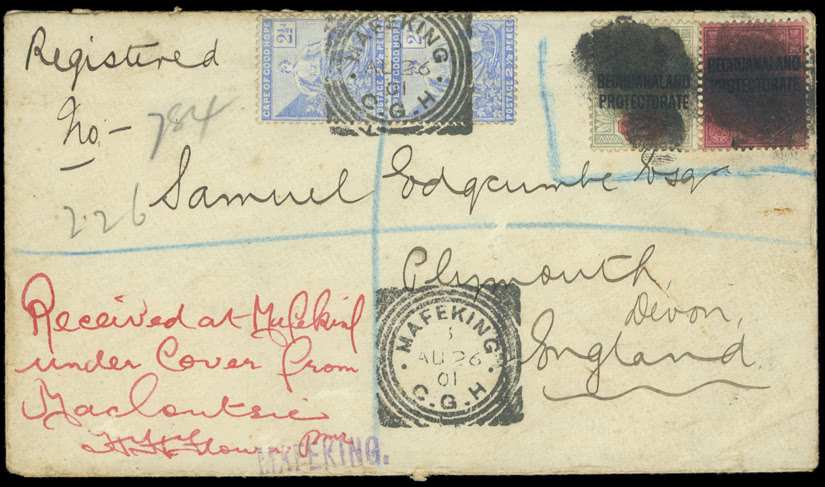 Registered
No. 784
226
CAPE OF GOOD HOPE
2½d
POSTAGE 2½ PENCE
OF GOOD HOPE
2½
POSTAGE 2½ PENCE
MAFEKING
AU 26
01
C.G.H
BECHUANALAND
PROTECTORATE
BECHUANALAND
PROTECTORATE
Samuel Edgcumbe Esqr
Plymouth,
Devon,
England.
MAFEKING
AU 26
01
C.G.H
Received at Mafeking
under Cover from
Macloutsie
MAFEKING.